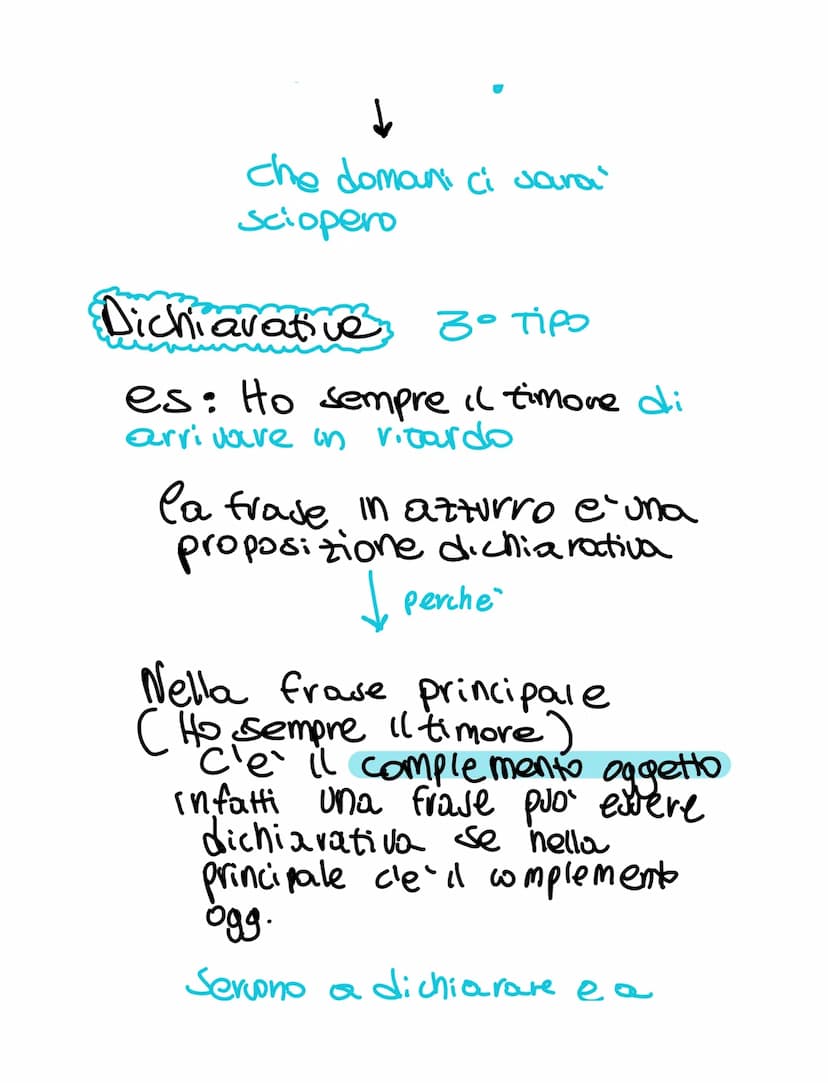 che domani ci sarà
sciopero
Dichiarative 3° TIPO
es: Ho sempre il timore di
arrivare in ritardo
la frase in azzurro è una
proposizione dichiarativa
perchè
Nella frase principale
(Ho sempre il timore)
c'è il complemento oggetto
infatti una frase può essere
dichiarativa se nella
principale c'è il complemento
ogg.
Servono a dichiarare e a